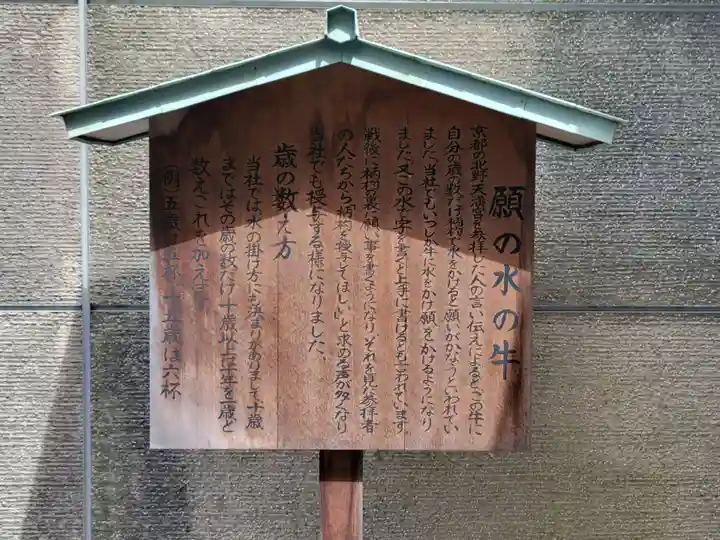 願の水の牛
京都の北野天満宮を参拝した人の言い伝えによると、この牛に
自分の歳の数だけ柄杓で水をかけると願いがかなうといわれてい
ました。当社でもいつしか牛に水をかけ願をかけるようになり
ました。又この水で字を書くと上手に書けるともいわれています。
戦後に柄杓の裏に願い事を書くようになり、それを見た参拝者
の人たちから「柄杓を授与してほしい」と求める声が多くなり
当社でも授与する様になりました。
歳の数え方
当社では水の掛け方にも決まりがありまして、十歳
まではその歳の数だけ、十歳以上は十年を一歳と
数えこれを加えます
(例)五歳は五杯 十五歳は六杯